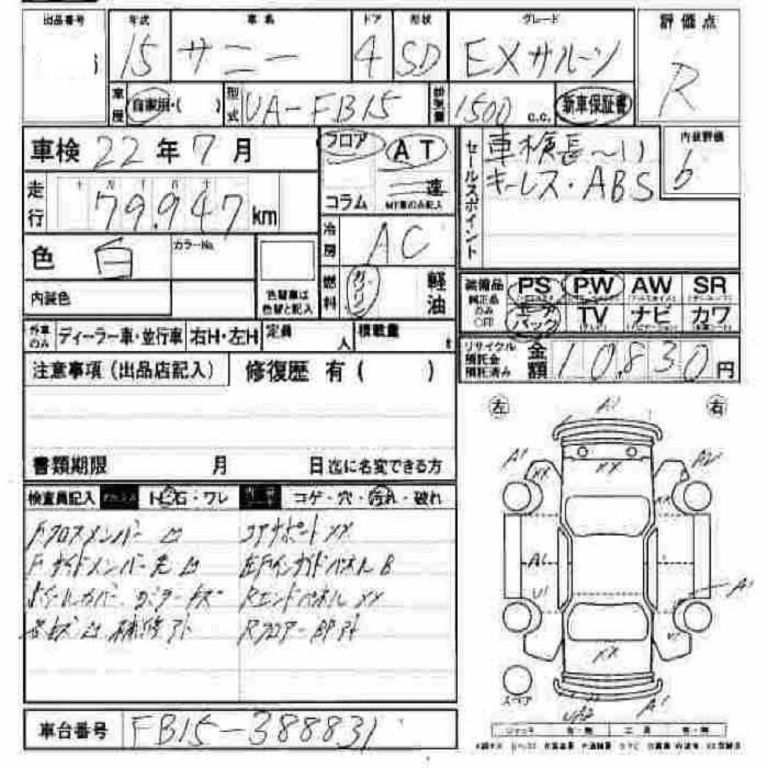 出品番号 年式 車名 ドア 形状 グレード 評価点
15 サニー 4 SD EXサルーン R
車歴 自家用・( ) 型式 UA-FB15 排気量 1500 c.c. 新車保証書
車検 22年 7月 フロア AT セールスポイント 車検長～!! 内装評価
走行 79,947 km コラム 速 キーレス・ABS b
色 白 カラーNo. 冷房 AC
内装色 色替車は色替と記入 燃料 ガソリン 軽油
装備品 純正品のみ○印 PS PW AW SR
エアバック TV ナビ カワ
外車のみ ディーラー車・並行車 右H・左H 定員 人 積載量 t
リサイクル預託金預託済み 金額 10,830円
注意事項（出品店記入） 修復歴 有 ( )
書類期限 月 日迄に名変できる方
検査員記入 ヒビ・ワレ コゲ・穴・汚れ・破れ
Fクロスメンバー 凹 コアサポートXX
Fサイドメンバー先凹 左FインサイドパネルB
ホイールカバー RエンドパネルXX
補修アト Rフロアー
左 右
A1
A1 XX XX XX A2
A1
U1 A1
XX U1
スペア
A1
車台番号 FB15-388831
ジャッキ 有・無 工具 有・無